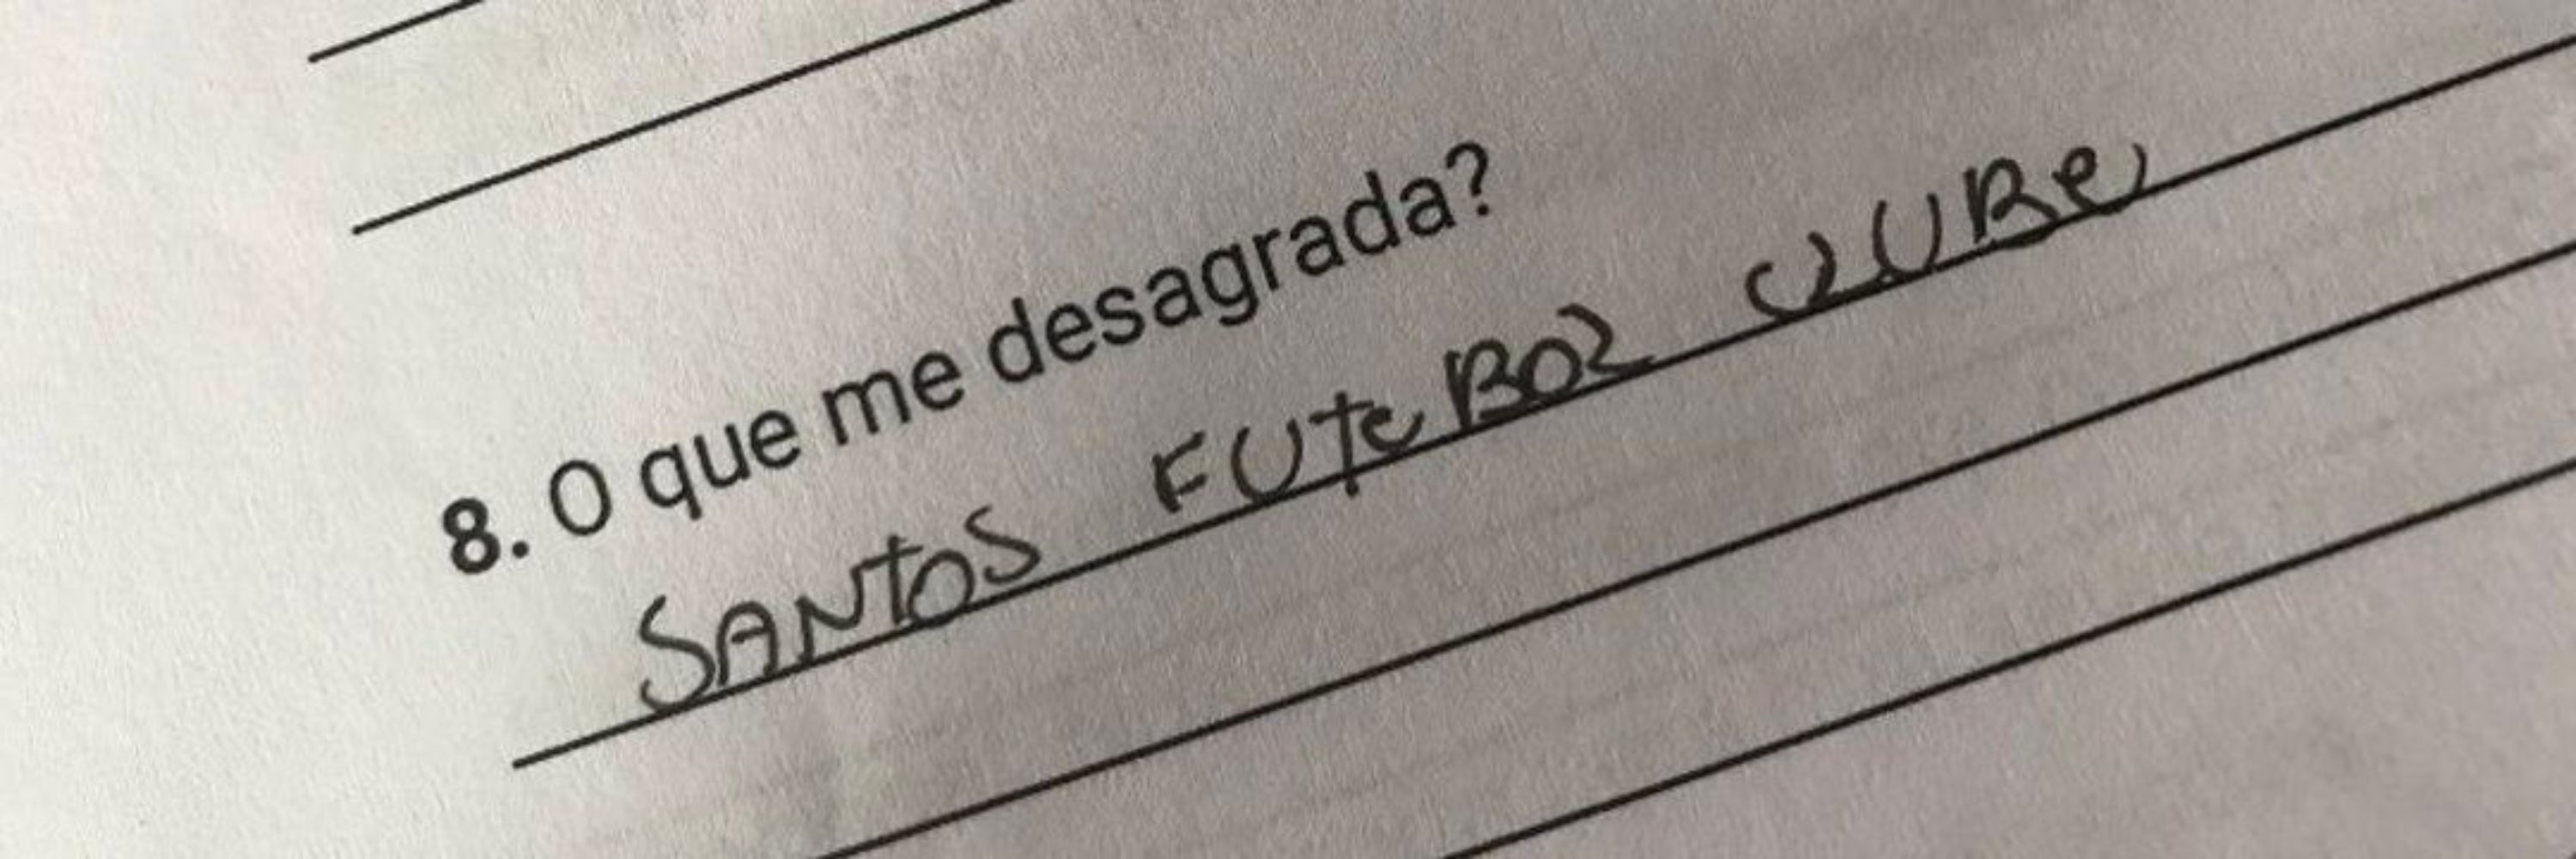 8. O que me desagrada?
SANTOS FUTEBOL CLUBE